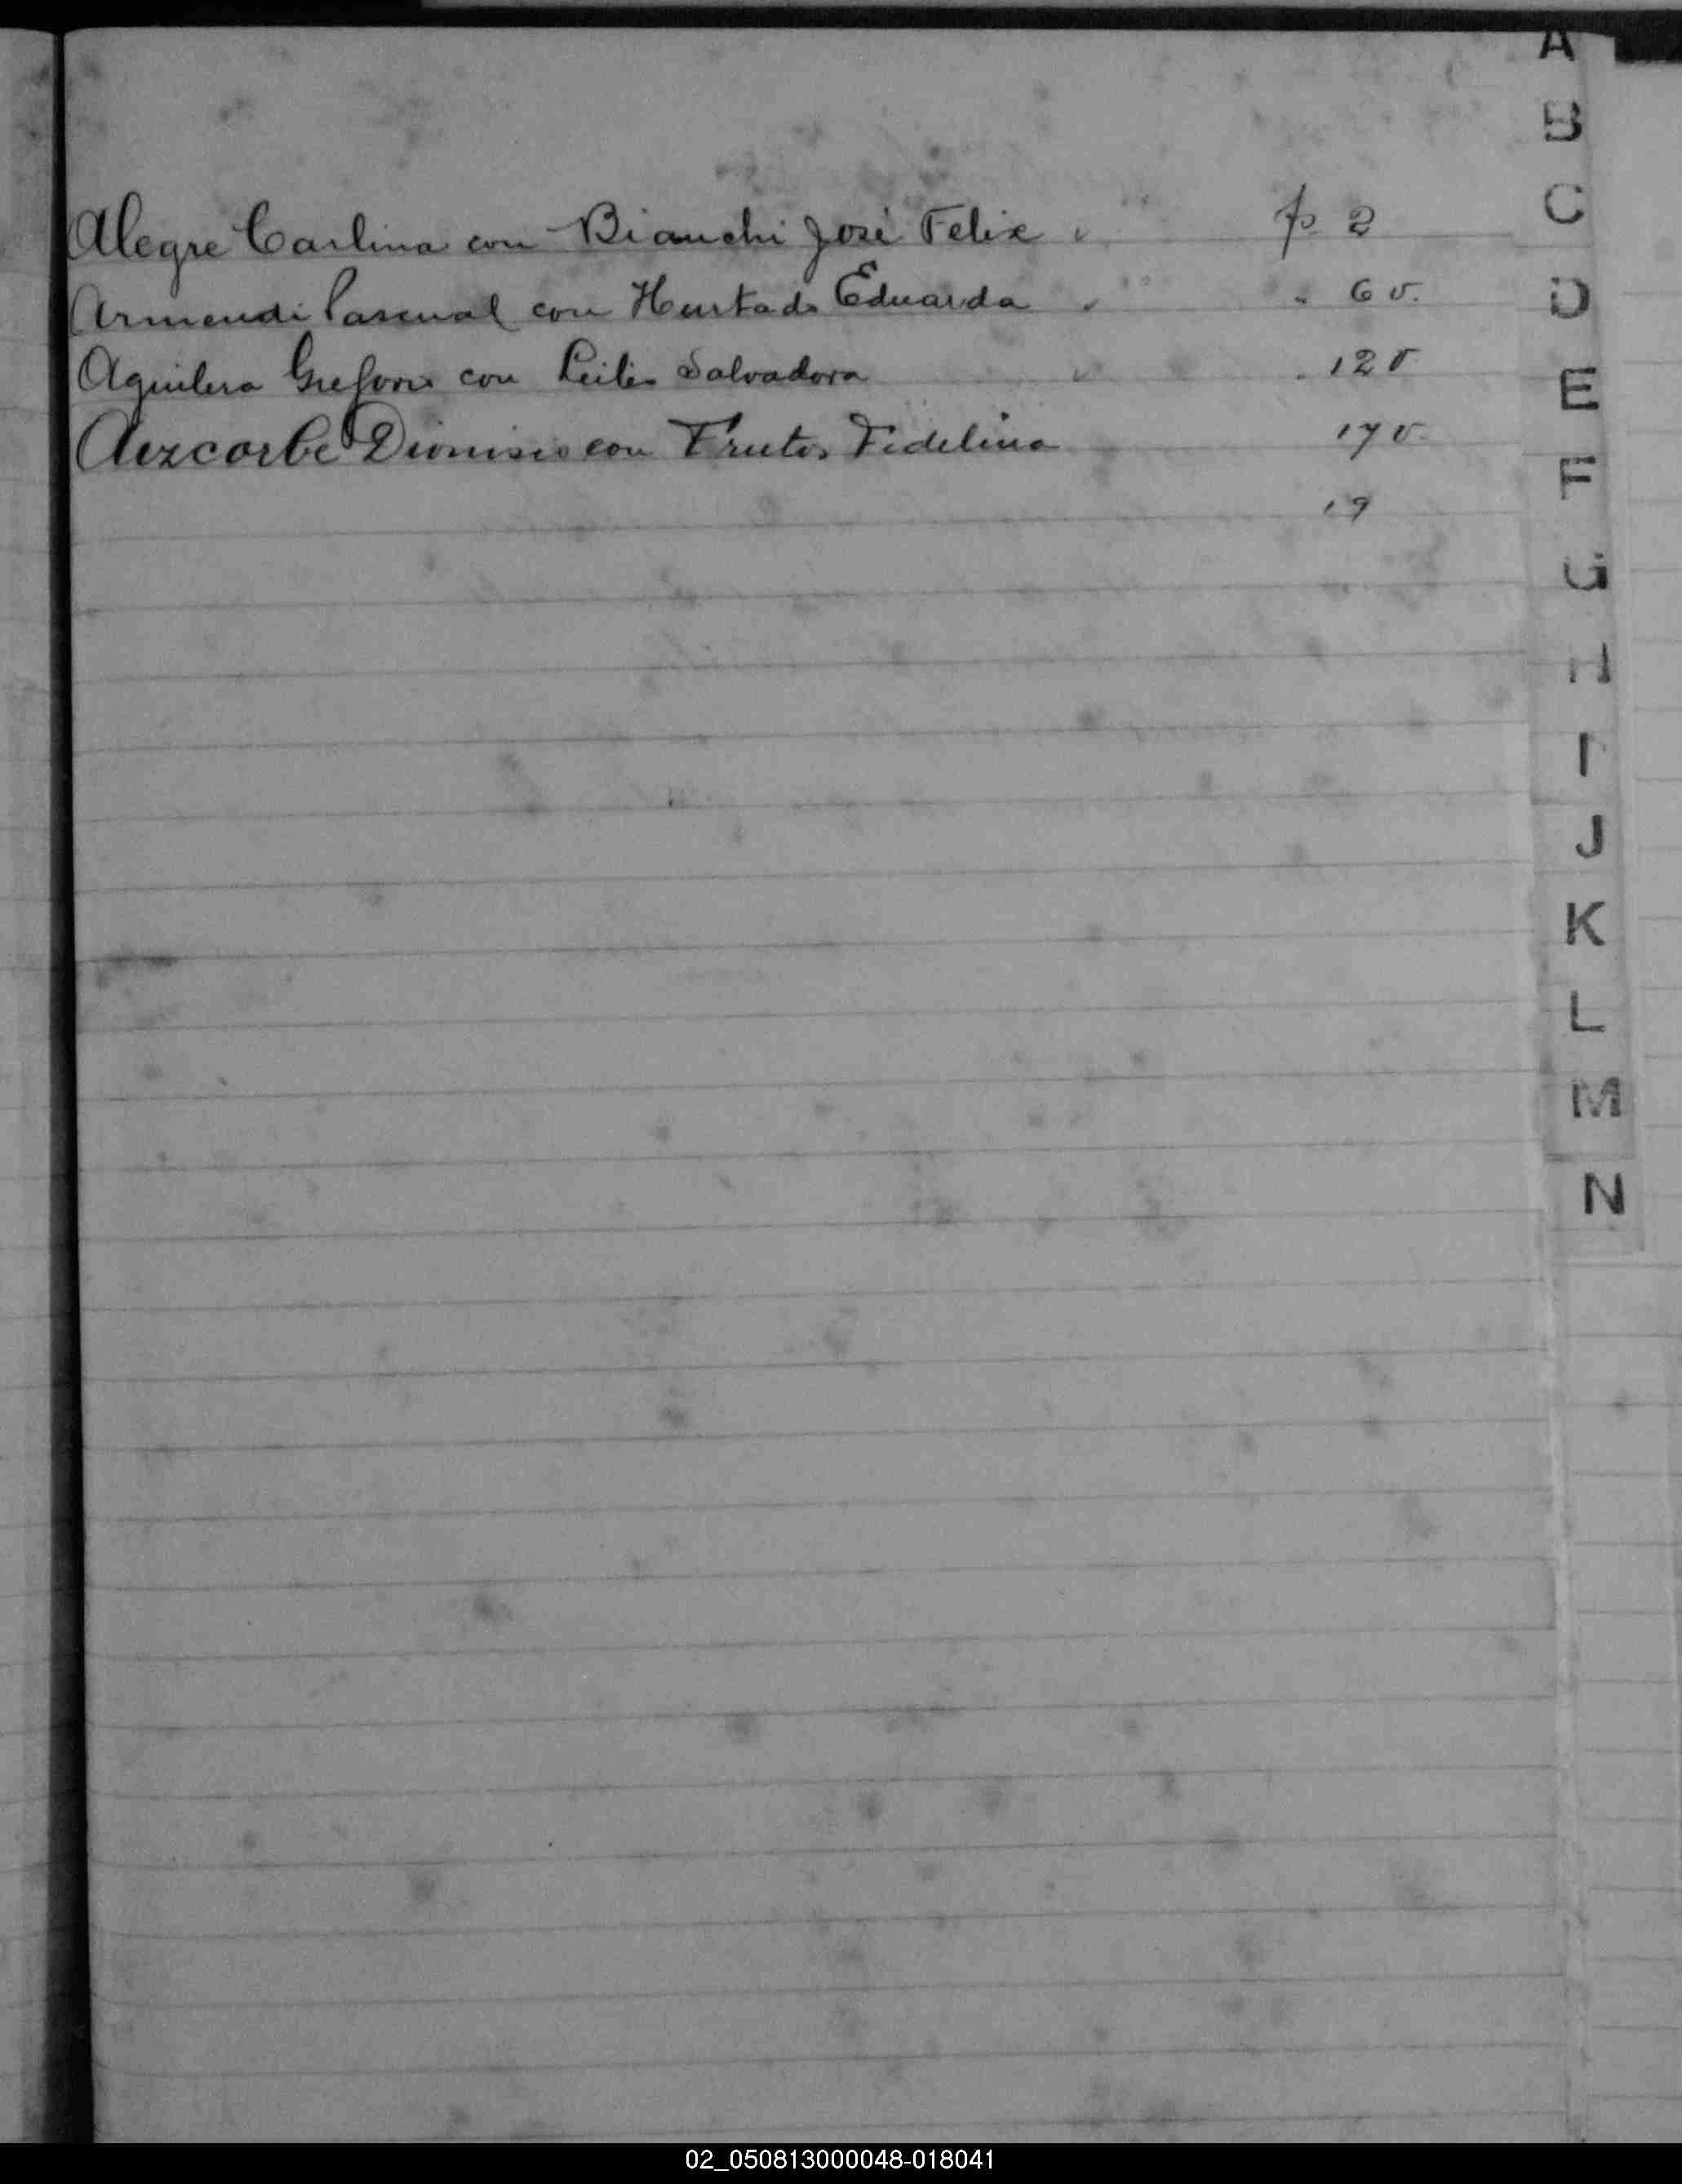 Alegre Carlina con Bianchi José Felix " p. 2
Armendi Pascual con Hurtado Eduarda " " 6 v.
Aguilera Gregorio con Leites Salvadora " " 12 v
Aezcorbe Dionisio con Frutos Fidelina 17 v.
19
A
B
C
D
E
F
G
H
I
J
K
L
M
N
02_050813000048-018041